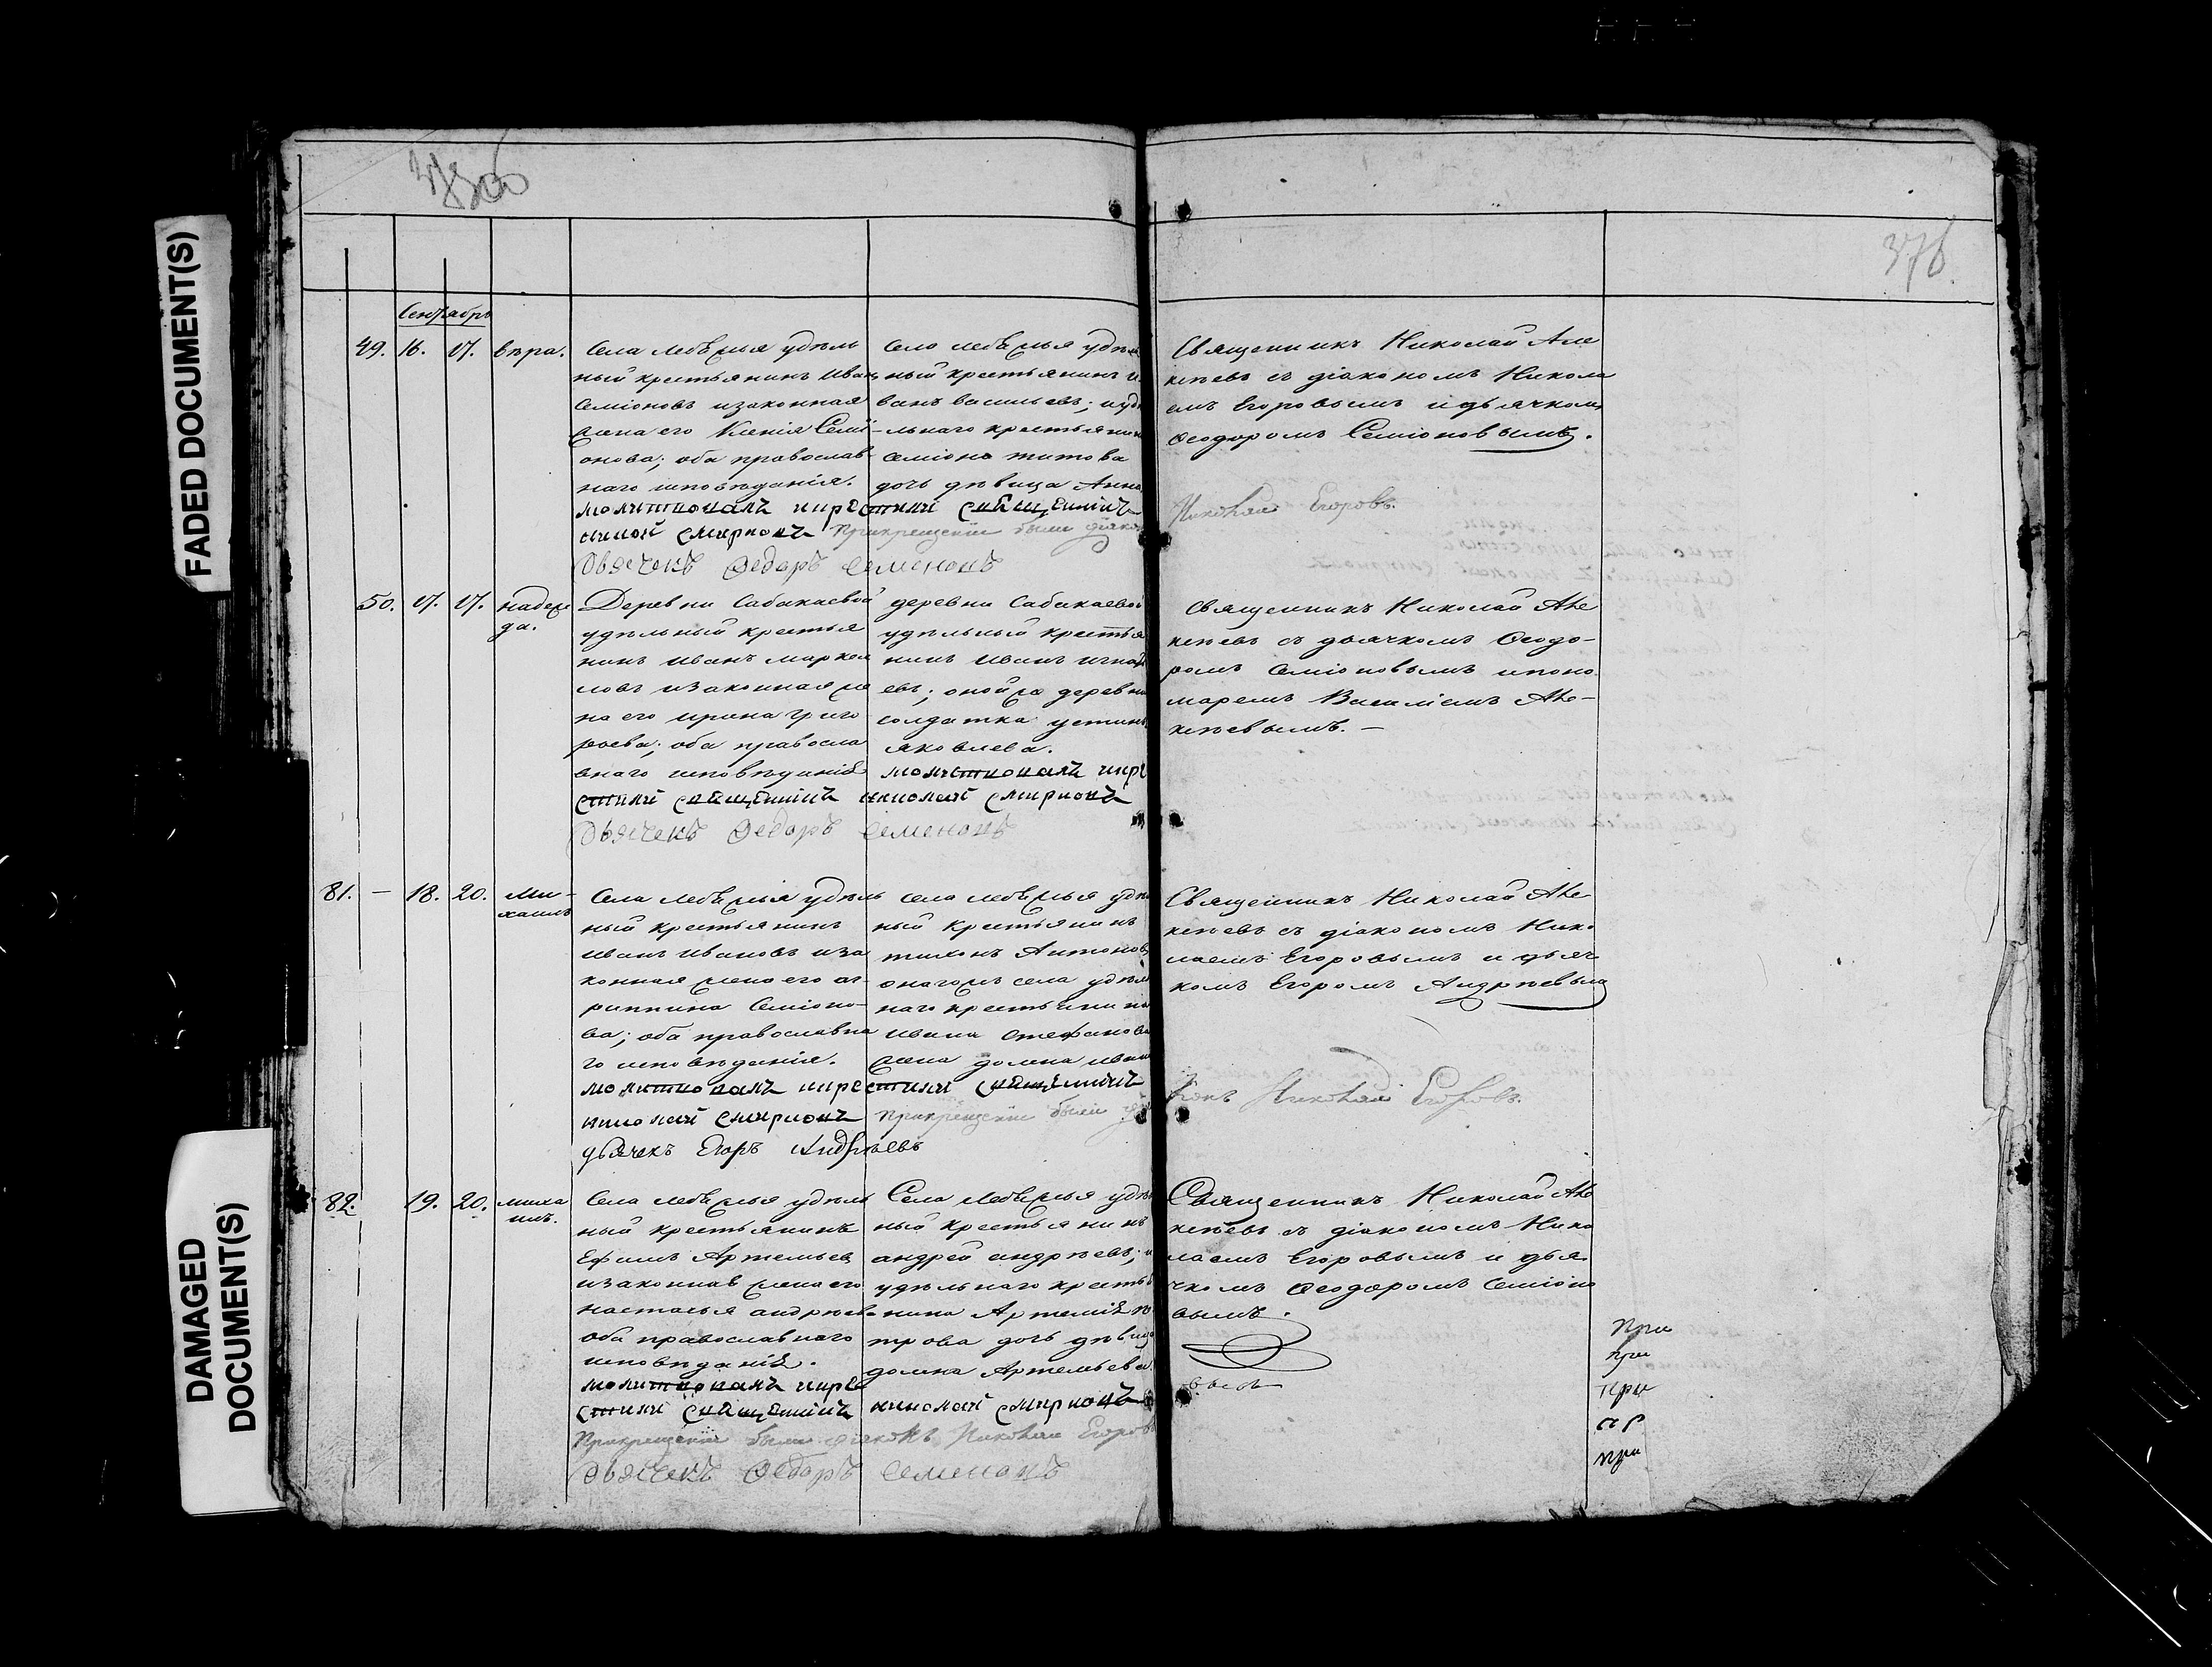 376
FADED DOCUMENT(S)
DAMAGED
DOCUMENT(S)
Сентябрь
49. 16. 17. Вѣра.
Села удѣль
ный крестьянинъ Иванъ
Семіоновъ изаконная
жена его Ксенія Семі
онова; оба православ
наго исповѣданія.
Село удѣль
ный крестьянинъ И
ванъ Васильевъ; иудѣ
льнаго крестьянин
Семіона Титова
дочь дѣвица Анна
Священникъ Николай Але
ксѣевъ съ діакономъ Никола
емъ Егоровымъ идьячкомъ
Ѳеодоромъ Семіоновымъ.
молитвовалъ икрестилъ священникъ
николай смирновъ Прикрещеніи были діако
Николай Егоровъ.
Дьячекъ Ѳедоръ Семеновъ
50. 17. 17. Надеж
да.
Деревни Сабакаевой
удѣльный крестья
нинъ Иванъ Маркел
ловъ изаконная же
на его Ирина Григо
рьева; оба правосла
внаго исповѣданія
деревни Сабакаевой
удѣльный крестья
нинъ Иванъ Игнат
евъ; онойже деревни
солдатка Устинь
Яковлева.
Священникъ Николай Але
ксѣевъ съ дьячкомъ Ѳеодо-
ромъ Семіоновымъ ипоно
маремъ Василіемъ Але-
ксѣевымъ. —
молитвовалъ икре
стилъ священникъ николай смирновъ
Дьячекъ Ѳедоръ Семеновъ
81. — 18. 20. Ми-
хаилъ
Села удѣль
ный крестьянинъ
Иванъ Ивановъ иза
конная жена его аг
рипина Семіоно-
ва; оба православна
го исповѣданія.
села удѣ
ный крестьянинъ
Антоновъ
онагожъ села удѣль
наго крестьянина
Ивана Стефанова
жена домна Иван
Священникъ Николай Але
ксѣевъ съ діакономъ Нико
лаемъ Егоровымъ и дьяч
комъ Егоромъ Андрѣевымъ
молитвовалъ икрестилъ священникъ
николай смирновъ Прикрещеніи были
Николай Егоровъ.
дьячекъ Егоръ Андрѣевъ
82. 19. 20. миха
илъ.
Села удѣль
ный крестьянинъ
Ефимъ Артемьевъ
изаконная жена его
настасья андрѣева
оба православнаго
исповѣданія.
Села удѣль
ный крестьянинъ
андрей андрѣевъ; и
удѣльнаго крестья
нина Артемія Пе
трова дочь дѣвица
домна Артемьева.
Священникъ Николай Але
ксѣевъ съ діакономъ Нико
лаемъ Егоровымъ и дья
чкомъ Ѳеодоромъ Семіоно
вымъ.
молитвовалъ икре
стилъ священникъ николай смирновъ
Прикрещеніи были діаконъ Николай Егоровъ
Дьячекъ Ѳедоръ Семеновъ
При
при
при
при